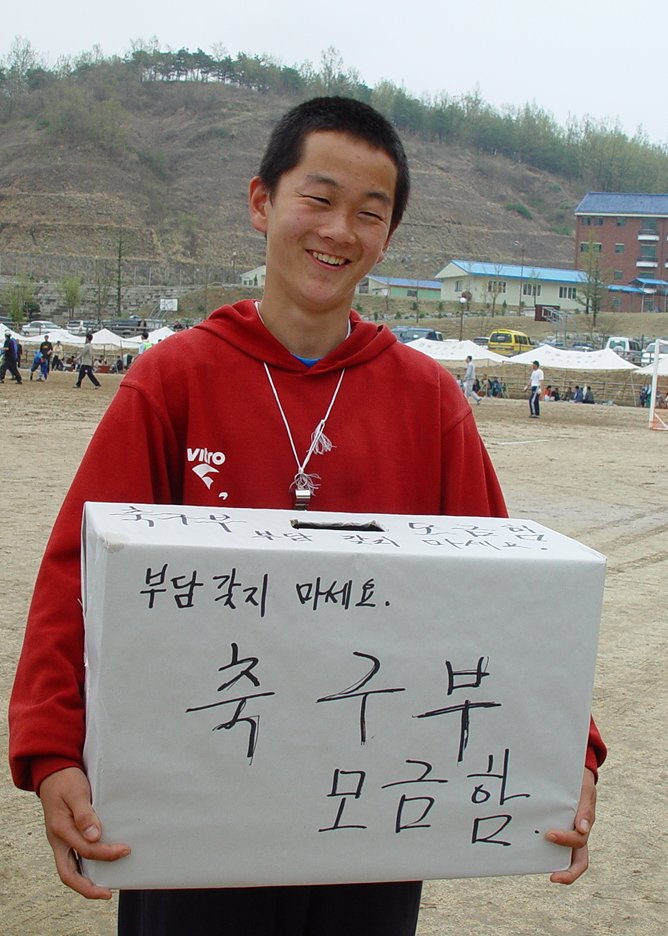 vitro
축구부 모금함
부담 갖지 마세요.
부담 갖지 마세요.
축구부
모금함.